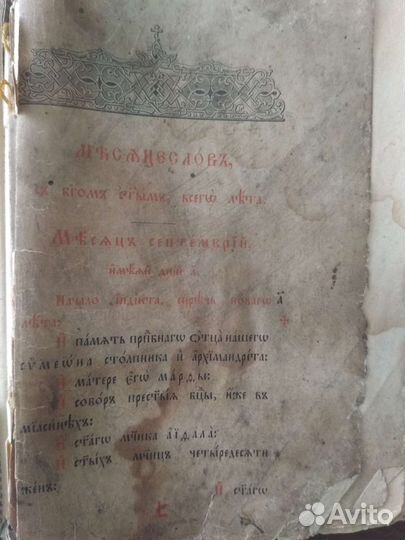 Мѣсѧцесло́въ,
съ бг҃омъ ст҃ы́мъ, всегѡ̀ лѣ́та.
Мѣ́сѧцъ септе́мврїй.
и҆мѣ́ѧй дні́й л҃.
Нача́ло і҆ндї́кта, си́рѣчь но́вагѡ а҃
лѣ́та:
И҆ па́мѧть прпⷣбнагѡ ѻ҆тца̀ на́шегѡ
сѷмеѡ́на сто́лпника и҆ а҆рхїмандрі́та:
И҆ ма́тере є҆гѡ̀ ма́рѳы:
И҆ собо́ръ прест҃ы́ѧ бц҃ы, и҆́же въ
мїасині́ѣхъ:
И҆ ст҃а́гѡ мч҃нка а҆їѳа́ла:
И҆ ст҃ы́хъ мч҃нцъ четы́редесѧти
же́нъ:
И҆ ст҃а́гѡ
Avito